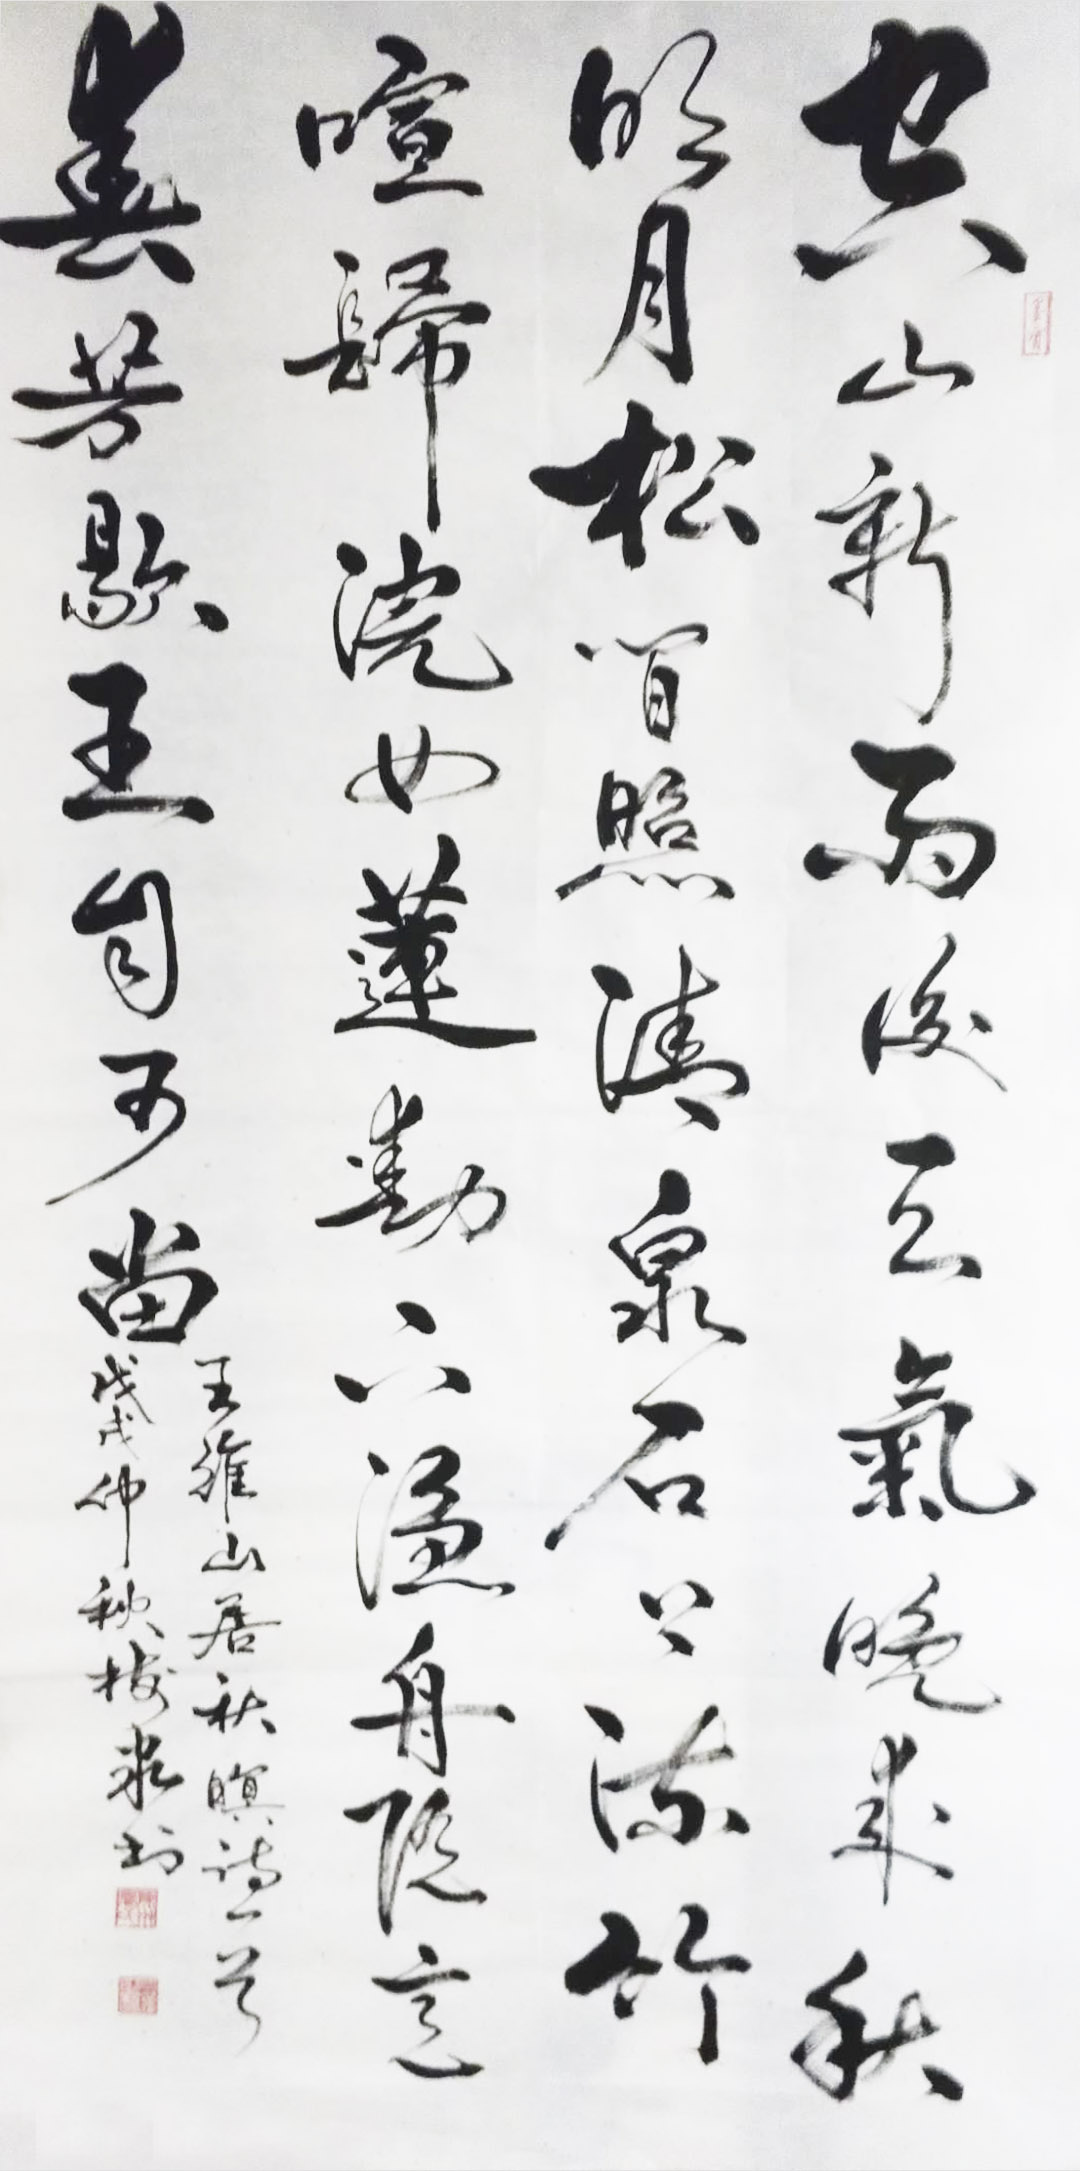 空山新雨後天氣晚來秋
明月松間照清泉石上流竹
喧歸浣女蓮動下漁舟隨意
春芳歇王自可留
王維山居秋暝詩一首
戊戌仲秋梅书